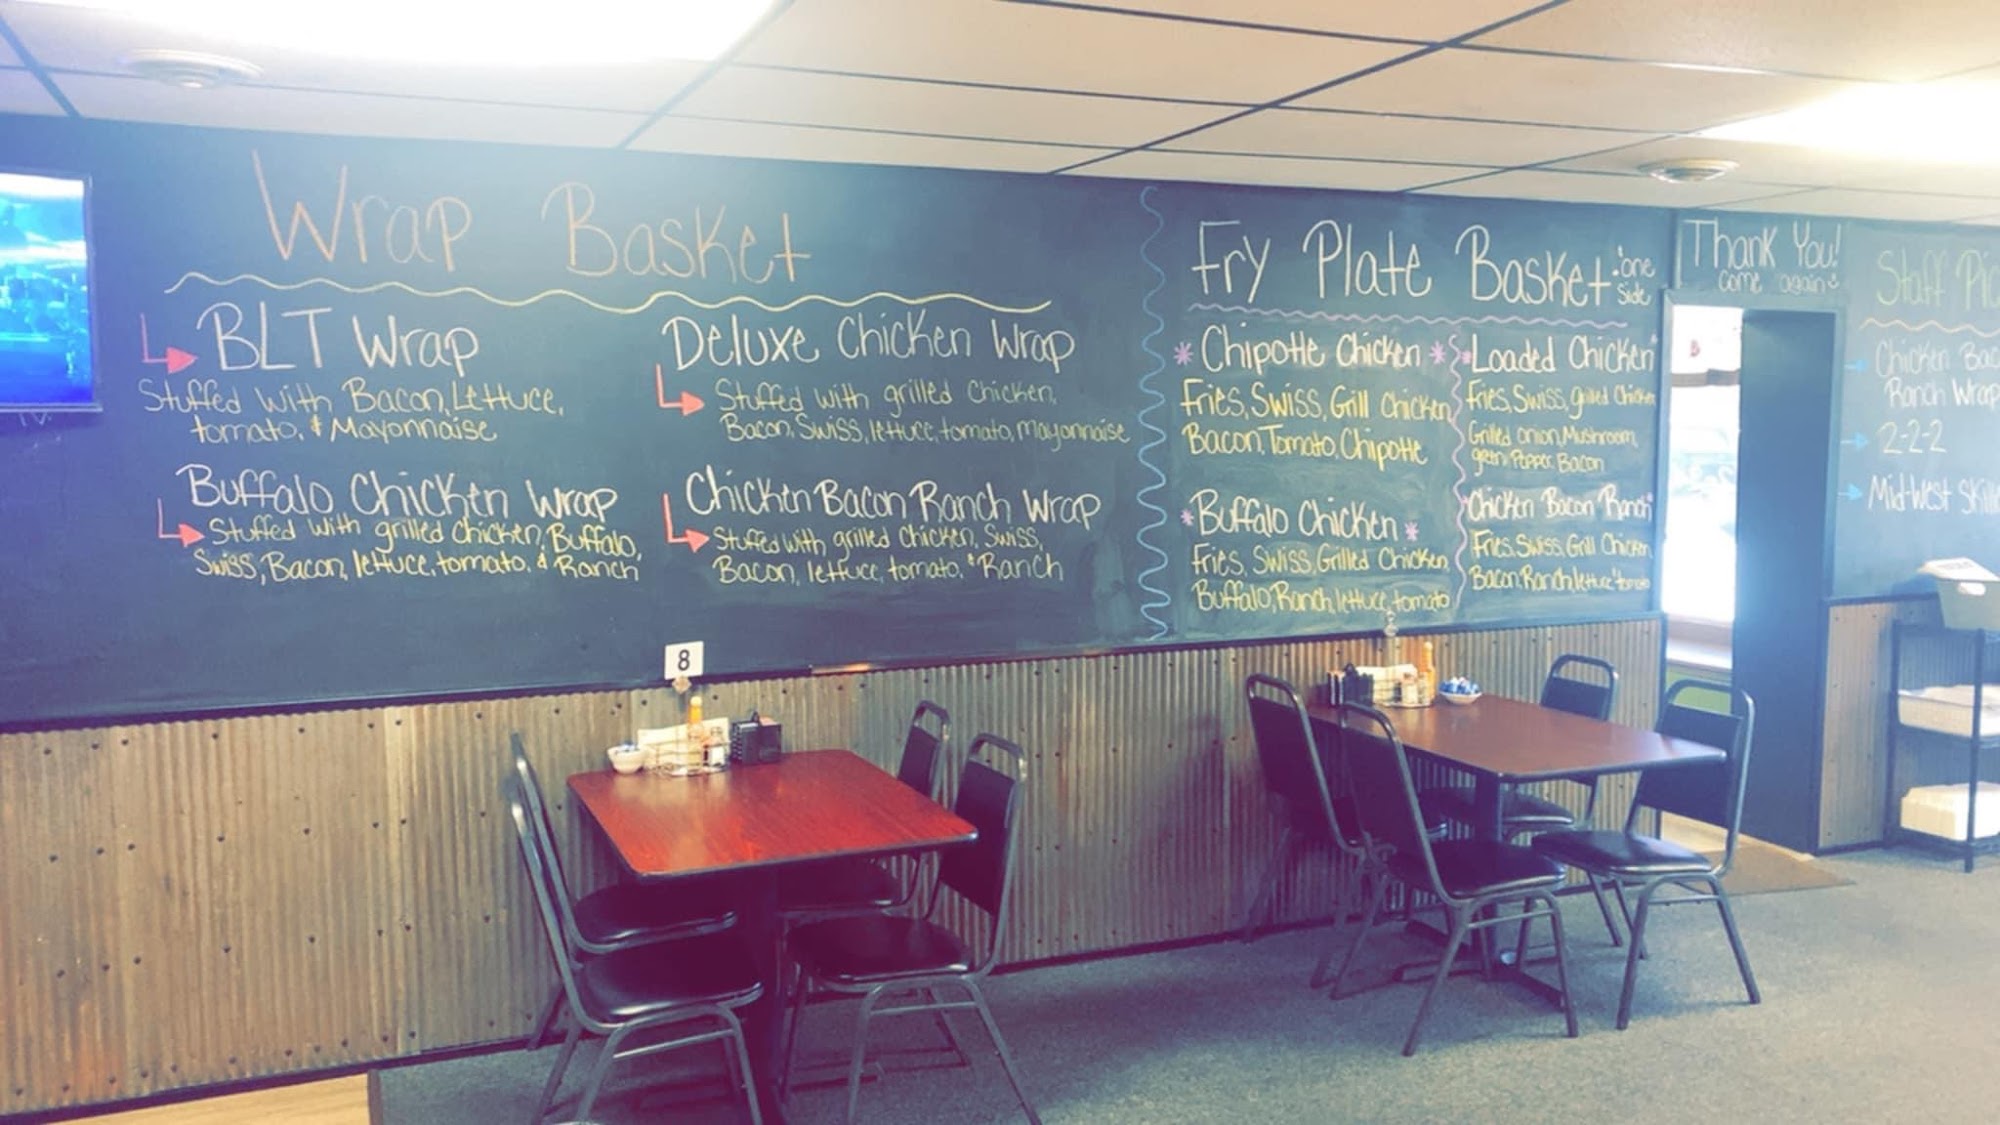 Wrap Basket
BLT Wrap
Stuffed with Bacon, Lettuce,
tomato, & Mayonnaise
Deluxe Chicken Wrap
Stuffed with grilled Chicken,
Bacon, Swiss, lettuce, tomato, mayonnaise
Buffalo Chicken Wrap
Stuffed with grilled Chicken, Buffalo,
Swiss, Bacon, lettuce, tomato, & Ranch
Chicken Bacon Ranch Wrap
Stuffed with grilled Chicken, Swiss,
Bacon, lettuce, tomato, & Ranch
8
Fry Plate Basket
one
side
Chipotle Chicken
Fries, Swiss, Grill Chicken
Bacon, Tomato, Chipotle
Loaded Chicken
Fries, Swiss, grilled Chicken
Grilled onion, Mushroom,
green Pepper, Bacon
Buffalo Chicken
Fries, Swiss, Grilled Chicken,
Buffalo, Ranch, lettuce, tomato
Chicken Bacon Ranch
Fries, Swiss, Grill Chicken,
Bacon, Ranch, lettuce, tomato
Thank You!
Come again
Staff Pic
Chicken Bac
Ranch Wrap
2-2-2
Mid-West Skille